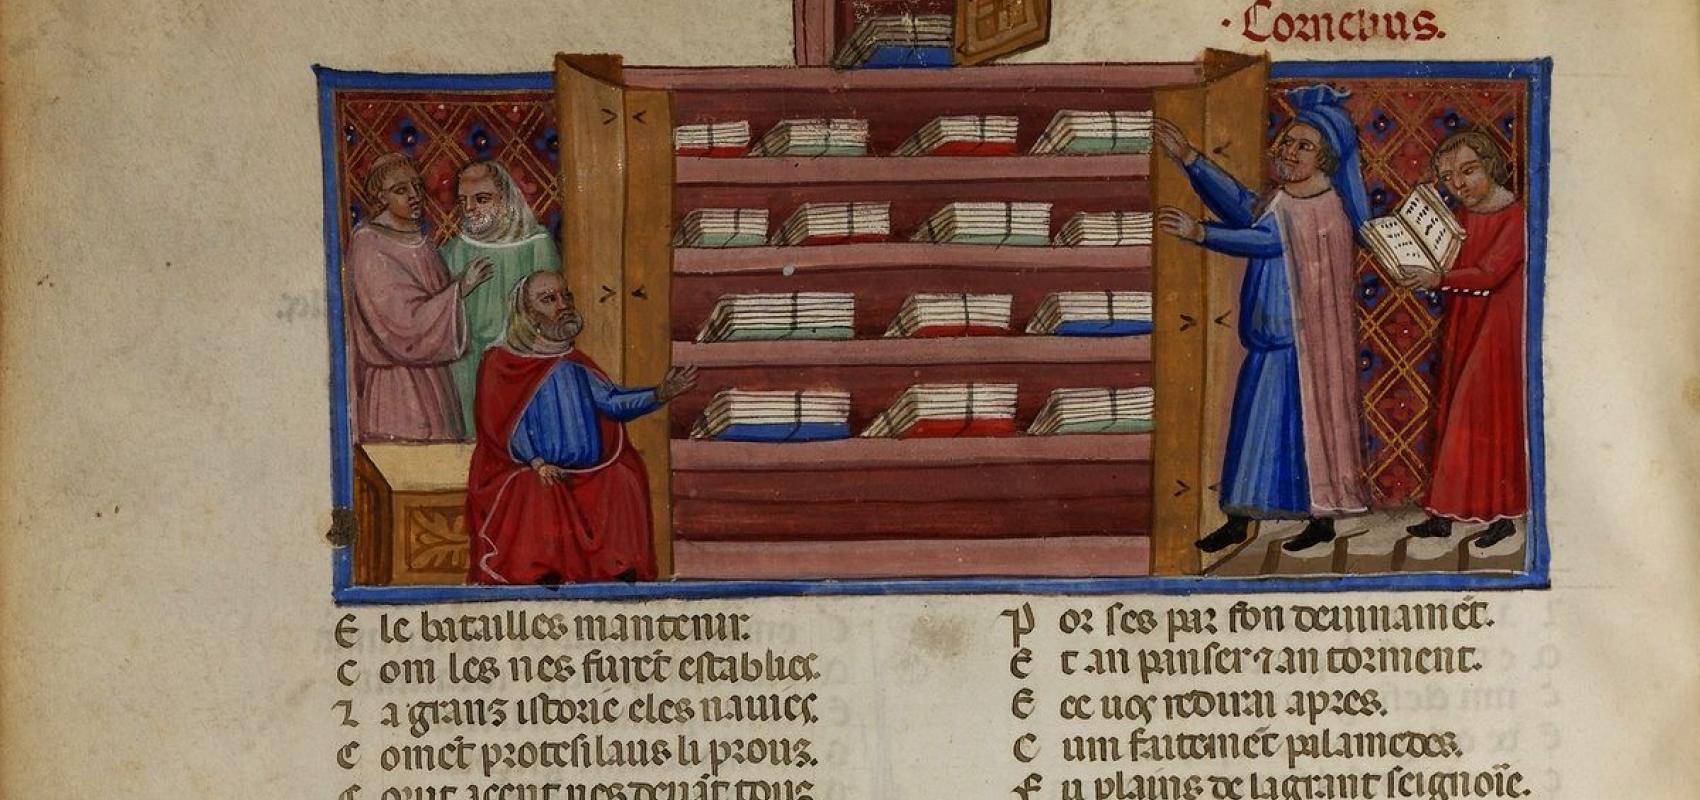 · Cornelius.
E le batailles mantenir.
C om les nes furẽt establies.
L a grans istorie e les nauies.
C omẽt protesilaus li prous.
P or ses par son deuinamẽt.
E t an panser ⁊ an torment.
E ce uos redirai apres.
C um faitemẽt palamedes.
E u plains de la grant seignorie.